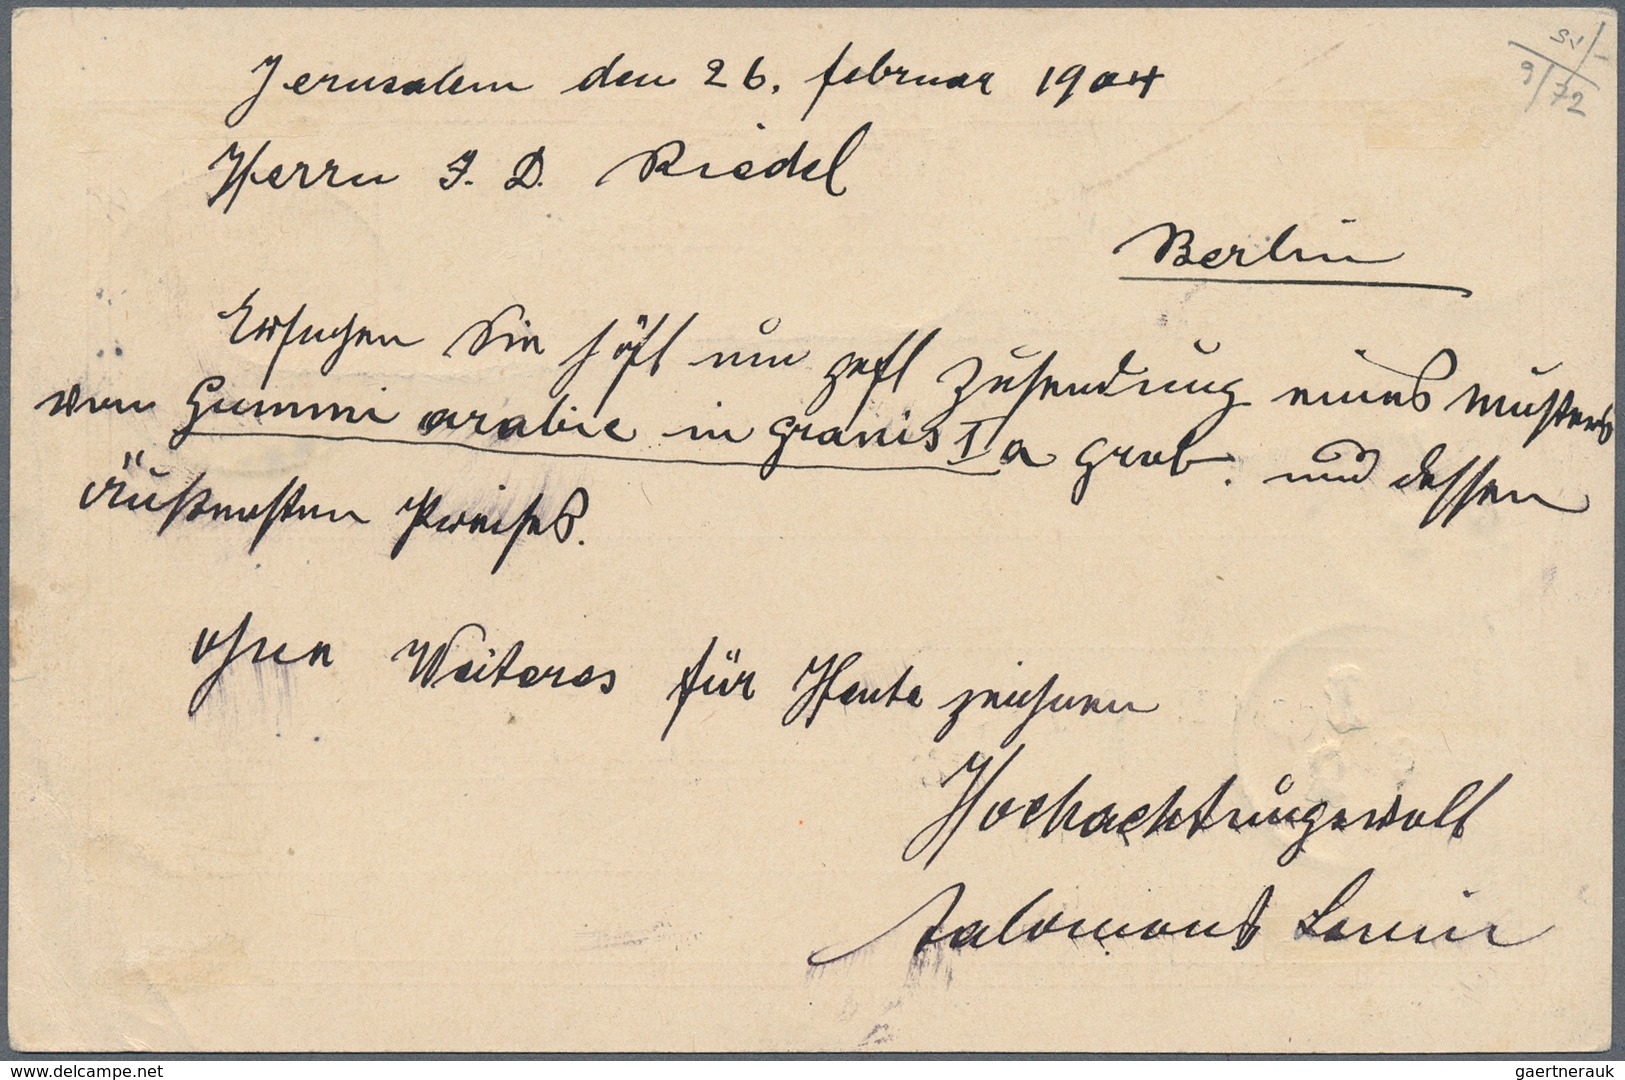 Jerusalem den 26. februar 1904
Herrn J. D. Riedel
Berlin
Ersuchen Sie höfl um gefl Zusendung eines Musters
von Gummi arabic in granis Ia grob. und dessen
äußersten Preises.
Ohne Weiteres für Heute zeichnen
Hochachtungsvoll
www.delcampe.net
gaertnerauk